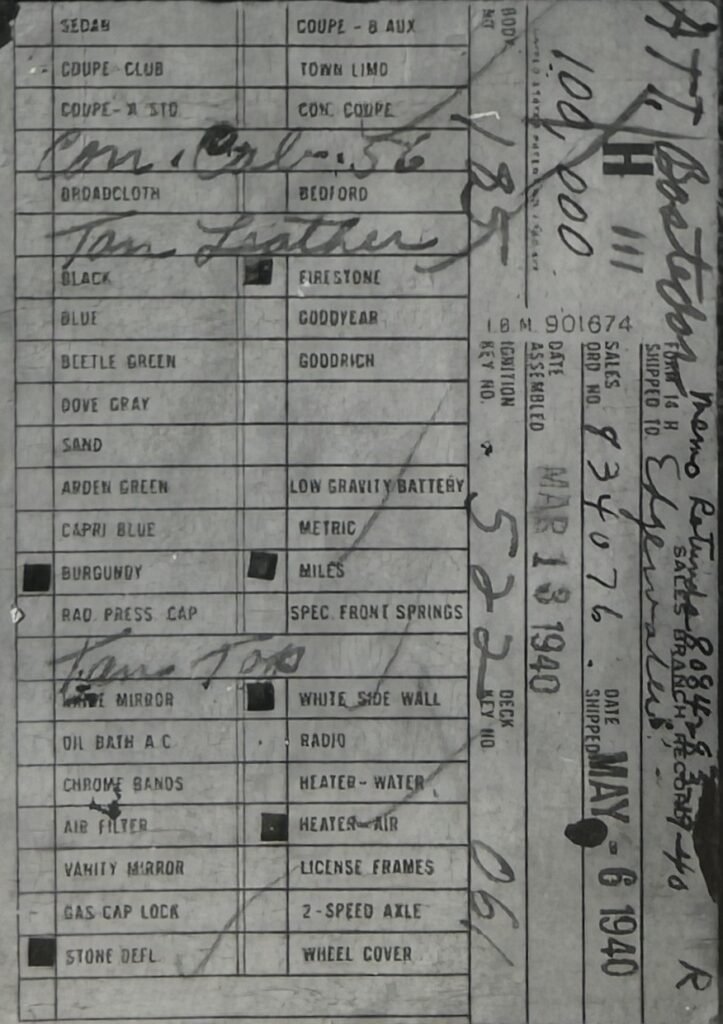 SEDAN COUPE - B AUX
COUPE CLUB TOWN LIMO
COUPE-A STD CON. COUPE
Con. Cab. 56
BROADCLOTH BEDFORD
Tan Leather
BLACK FIRESTONE
BLUE GOODYEAR
BEETLE GREEN GOODRICH
DOVE GRAY
SAND
ARDEN GREEN LOW GRAVITY BATTERY
CAPRI BLUE METRIC
BURGUNDY MILES
RAD. PRESS. CAP SPEC. FRONT SPRINGS
Tan Top
MIRROR WHITE SIDE WALL
OIL BATH A C RADIO
CHROME BANDS HEATER - WATER
AIR FILTER HEATER - AIR
VANITY MIRROR LICENSE FRAMES
GAS CAP LOCK 2 - SPEED AXLE
STONE DEFL. WHEEL COVER
ATT. Bostedor Memo Returned
SALES BRANCH RECORD
R
H 111
FORM 14 H
SHIPPED TO Edgewater
100,000
I.B.M. 901674
SALES ORD NO. 834076. DATE SHIPPED MAY - 6 1940
DATE ASSEMBLED MAR 13 1940
BODY 185
IGNITION KEY NO. 522 DECK KEY NO 061